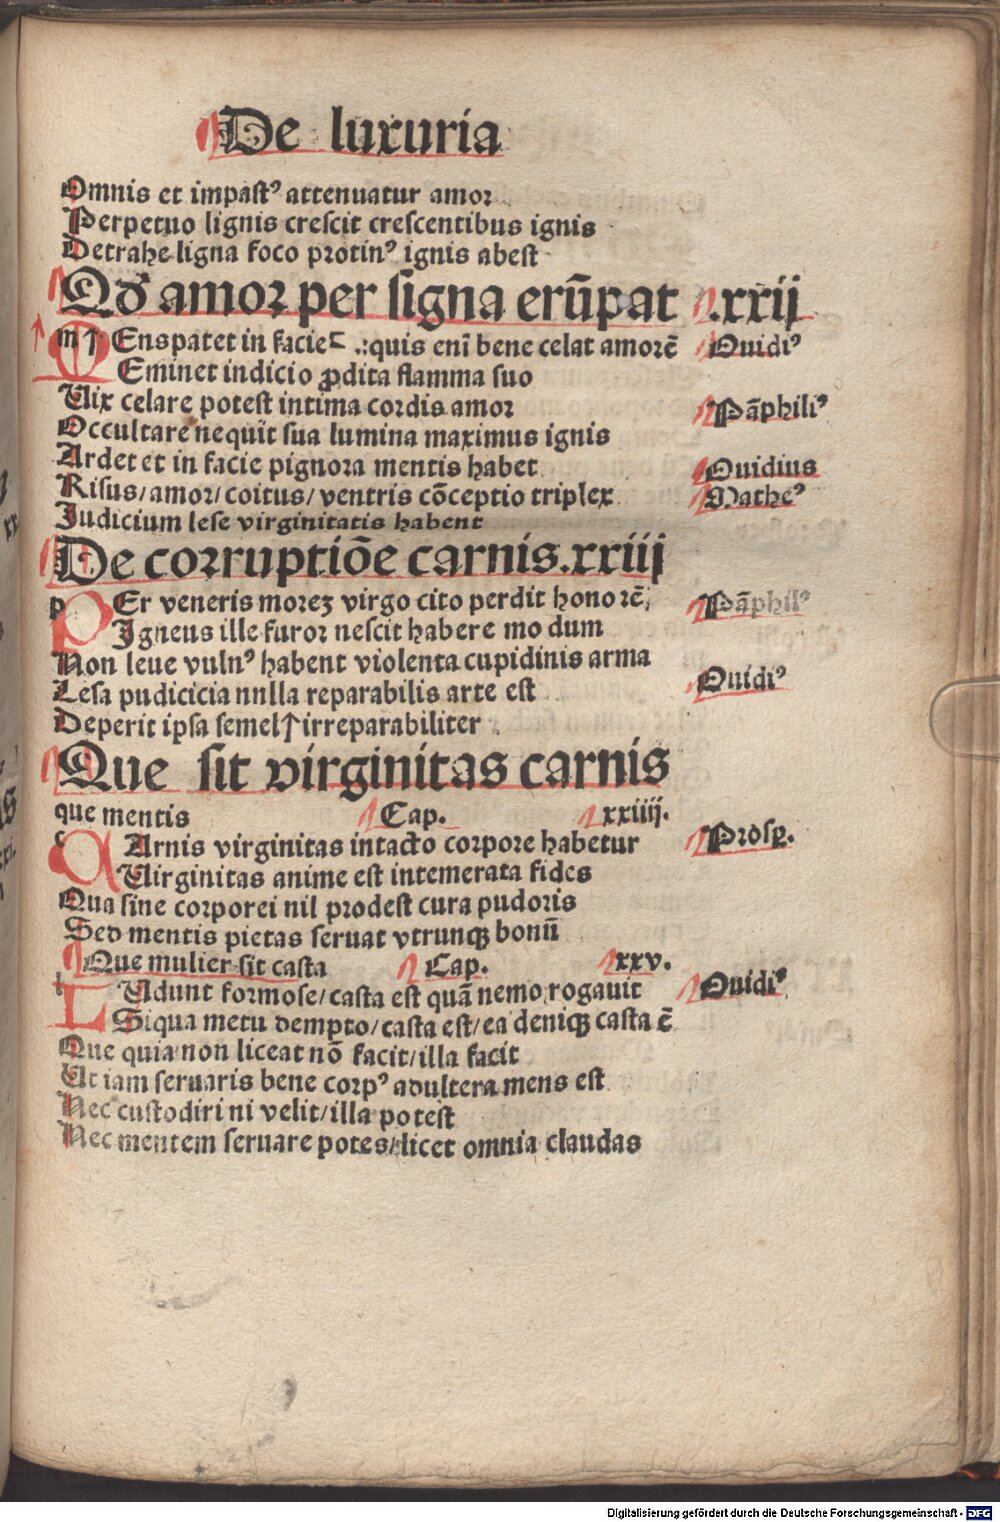 De luxuria
Omnis et impastꝰ attenuatur amor
Perpetuo lignis crescit crescentibus ignis
Detrahe ligna foco protinꝰ ignis abest
Qd' amor per signa erūpat .xxij
Ens patet in facie .:quis eni bene celat amorē Ouidiꝰ
Eminet indicio ꝓdita flamma suo
Uix celare potest intima cordis amor Pāphiliꝰ
Occultare nequit sua lumina maximus ignis
Ardet et in facie pignora mentis habet Ouidius
Risus/amor/coitus/ventris cōceptio triplex Matheꝰ
Judicium lese virginitatis habent
De corruptiōe carnis.xxiij
p Er veneris morez virgo cito perdit honorē, Pāphilꝰ
Igneus ille furor nescit habere mo dum
Non leue vulnꝰ habent violenta cupidinis arma
Lesa pudicicia nulla reparabilis arte est Ouidiꝰ
Deperit ipsa semel↑irreparabiliter
Que sit virginitas carnis
que mentis Cap. xxiiij.
c Arnis virginitas intacto corpore habetur Prosꝑ.
Uirginitas anime est intemerata fides
Qua sine corporei nil prodest cura pudoris
Sed mentis pietas seruat vtrunqꝫ bonū
Que mulier sit casta Cap. xxv.
l Udunt formose/casta est quā nemo rogauit Ouidiꝰ
Siqua metu dempto/casta est/ea deniqꝫ casta ē
Que quia non liceat nō facit/illa facit
Ut iam seruaris bene corpꝰ adultera mens est
Nec custodiri ni velit/illa potest
Nec mentem seruare potes/licet omnia claudas
Digitalisierung gefördert durch die Deutsche Forschungsgemeinschaft - DFG